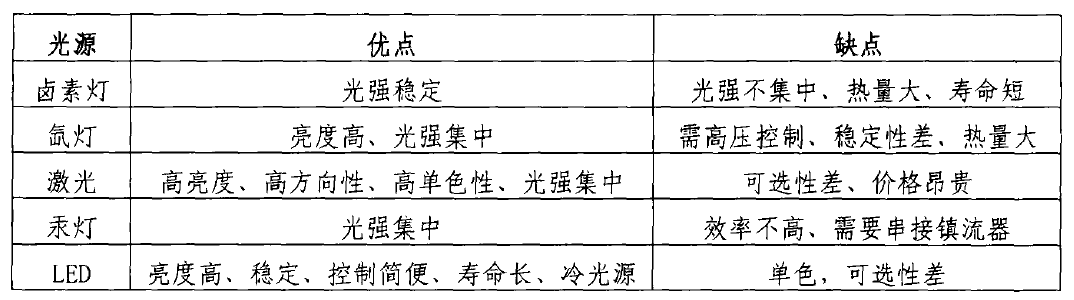 光源 优点 缺点
卤素灯 光强稳定 光强不集中、热量大、寿命短
氙灯 亮度高、光强集中 需高压控制、稳定性差、热量大
激光 高亮度、高方向性、高单色性、光强集中 可选性差、价格昂贵
汞灯 光强集中 效率不高、需要串接镇流器
LED 亮度高、稳定、控制简便、寿命长、冷光源 单色，可选性差